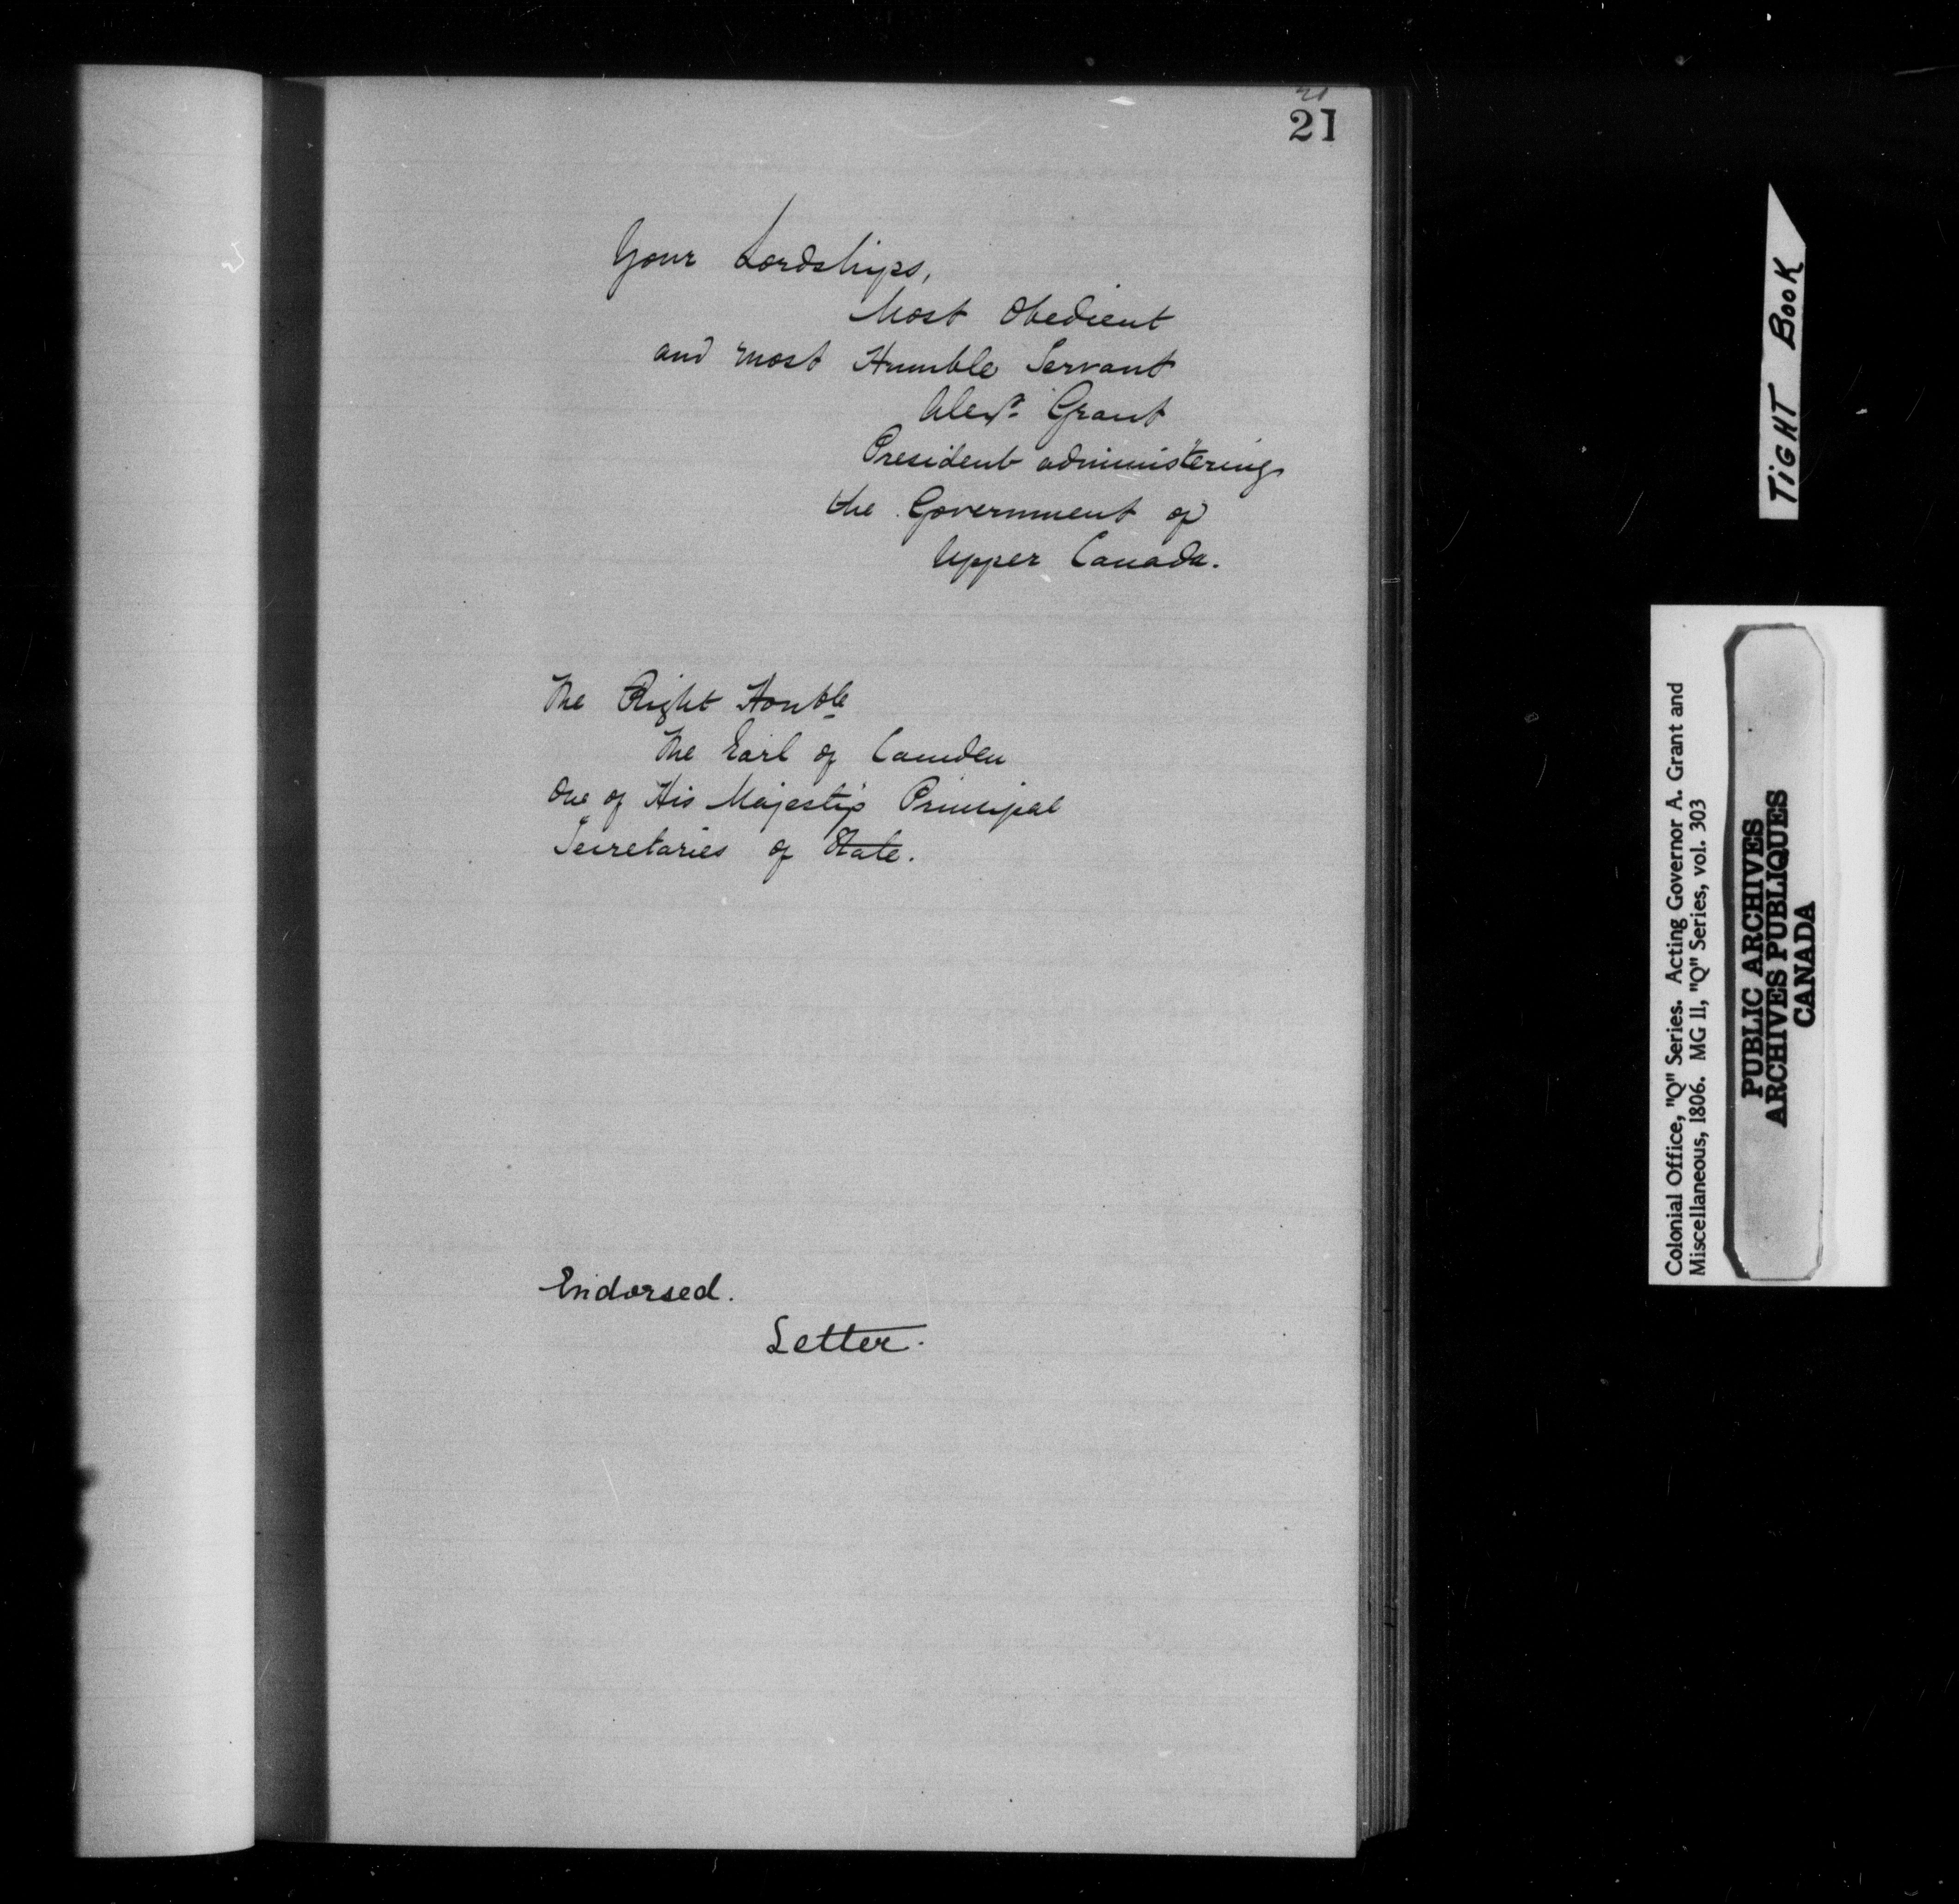 21
Your Lordships,
Most Obedient
and most Humble Servant
Alexr. Grant
President administering
the Government of
Upper Canada.
The Right Honble
The Earl of Camden
One of His Majesty's Principal
Secretaries of State.
Endorsed.
Letter.
TIGHT BOOK
Colonial Office, "Q" Series. Acting Governor A. Grant and
Miscellaneous, 1806. MG 11, "Q" Series, vol. 303
PUBLIC ARCHIVES
ARCHIVES PUBLIQUES
CANADA